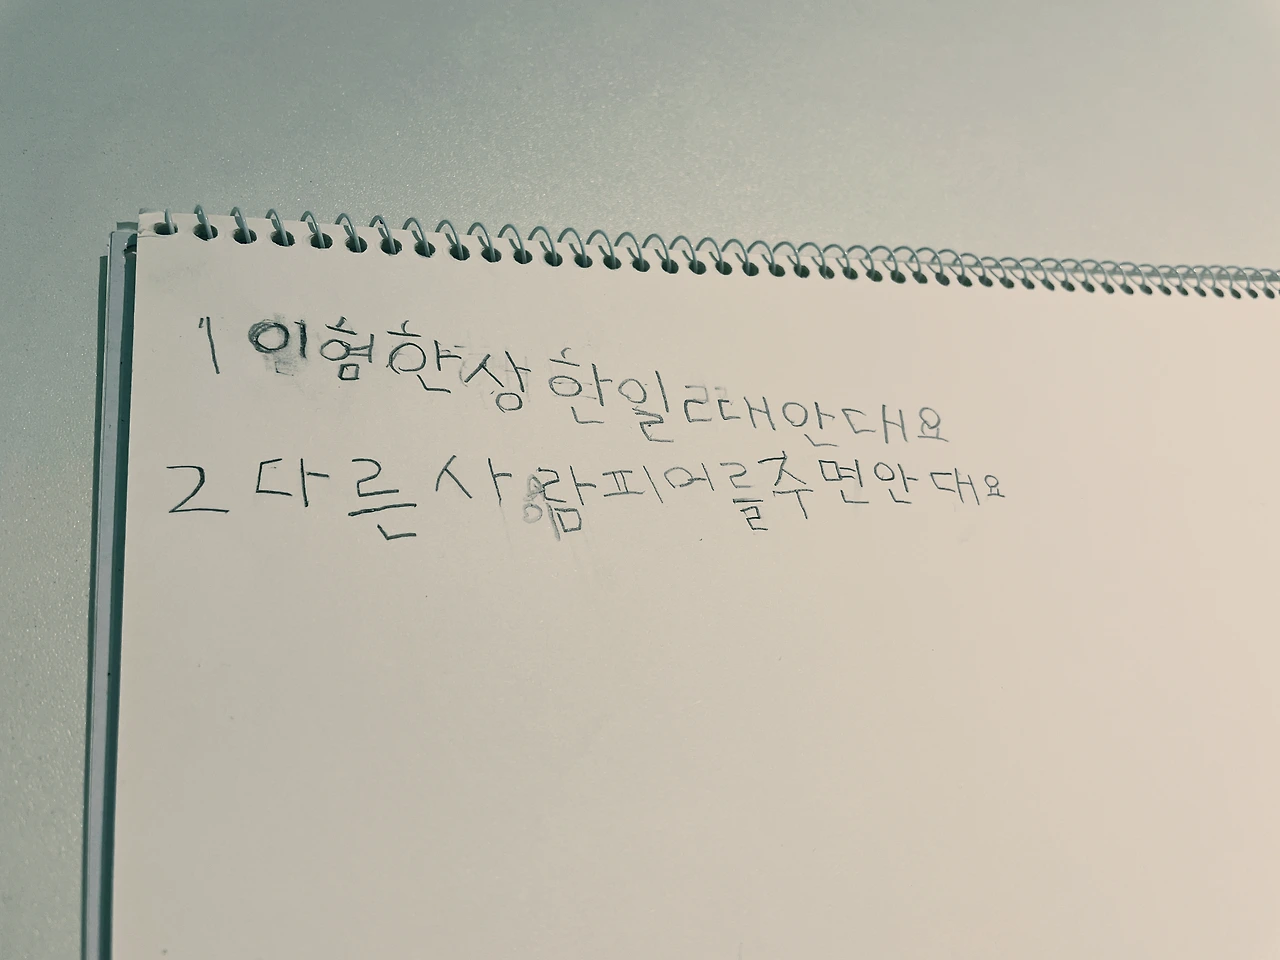 1 이험한상한일 ㄹ대안대요
2 다른사람피어를주면안대요